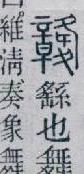 竷繇也舞
維清奏象舞